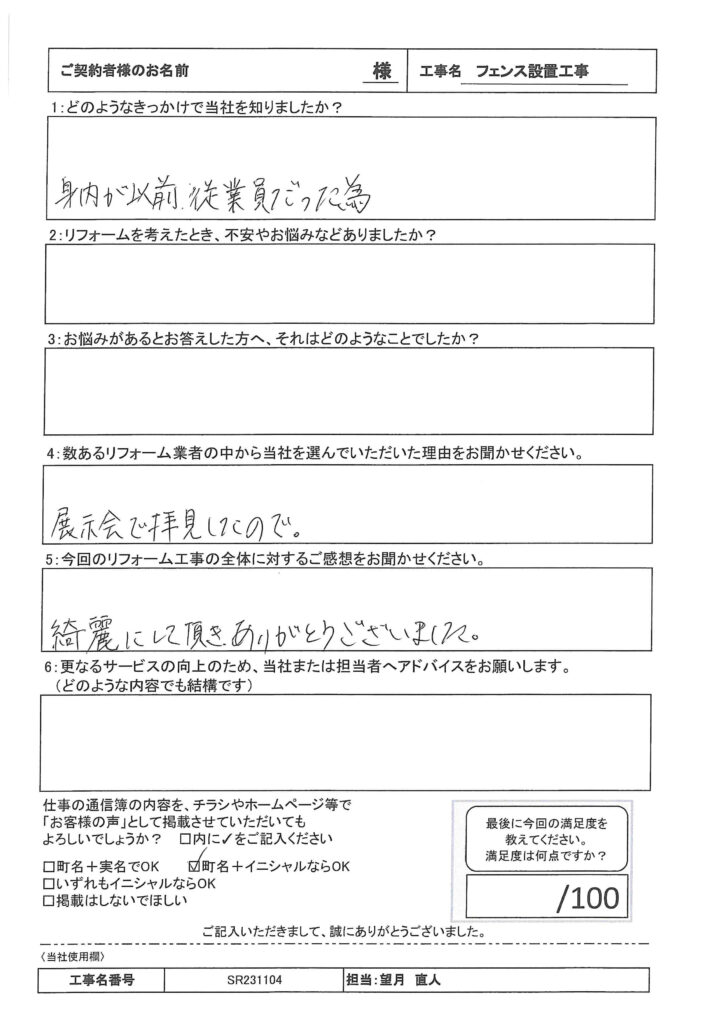 ご契約者様のお名前 様 工事名 フェンス設置工事
1:どのようなきっかけで当社を知りましたか?
身内が以前従業員だった為
2:リフォームを考えたとき、不安やお悩みなどありましたか?
3:お悩みがあるとお答えした方へ、それはどのようなことでしたか?
4:数あるリフォーム業者の中から当社を選んでいただいた理由をお聞かせください。
展示会で拝見したので。
5:今回のリフォーム工事の全体に対するご感想をお聞かせください。
綺麗にして頂きありがとうございました。
6:更なるサービスの向上のため、当社または担当者へアドバイスをお願いします。
(どのような内容でも結構です)
仕事の通信簿の内容を、チラシやホームページ等で
「お客様の声」として掲載させていただいても
よろしいでしょうか? □内に✓をご記入ください
□町名+実名でOK ☑町名+イニシャルならOK
□いずれもイニシャルならOK
□掲載はしないでほしい
最後に今回の満足度を
教えてください。
満足度は何点ですか?
/100
ご記入いただきまして、誠にありがとうございました。
〈当社使用欄〉
工事名番号 SR231104 担当:望月 直人